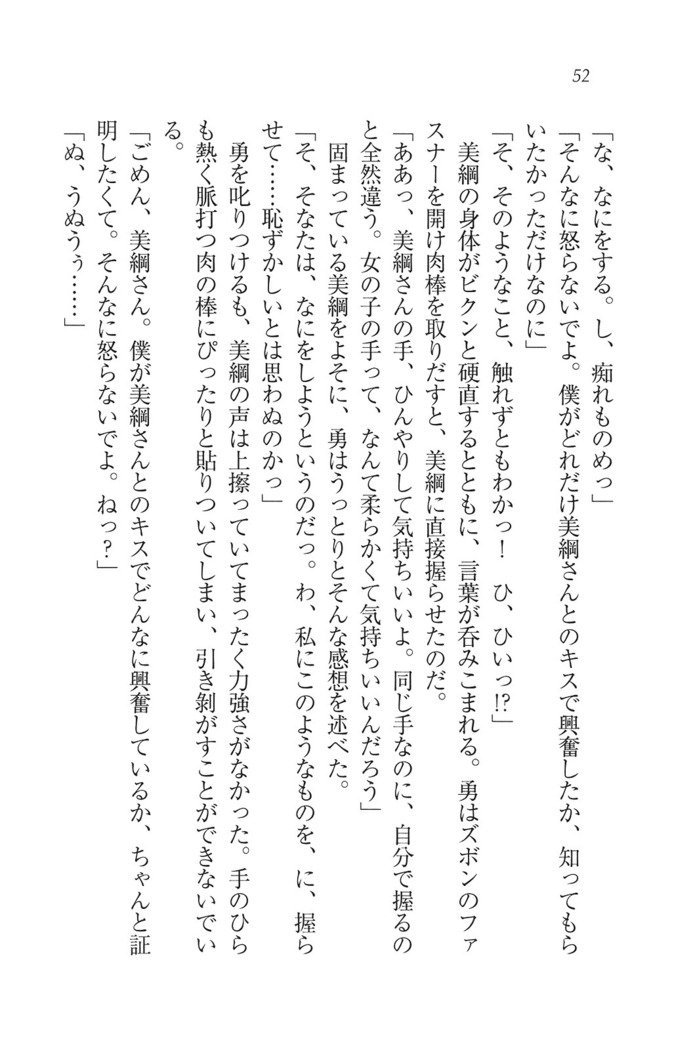 52
「な、なにをする。し、痴れものめっ」
「そんなに怒らないでよ。僕がどれだけ美綱さんとのキスで興奮したか、知ってもら
いたかっただけなのに」
「そ、そのようなこと、触れずともわかっ！　ひ、ひいっ!?」
　美綱の身体がビクンと硬直するとともに、言葉が呑みこまれる。勇はズボンのファ
スナーを開け肉棒を取りだすと、美綱に直接握らせたのだ。
「ああっ、美綱さんの手、ひんやりして気持ちいいよ。同じ手なのに、自分で握るの
と全然違う。女の子の手って、なんて柔らかくて気持ちいいんだろう」
　固まっている美綱をよそに、勇はうっとりとそんな感想を述べた。
「そ、そなたは、なにをしようというのだっ。わ、私にこのようなものを、に、握ら
せて……恥ずかしいとは思わぬのかっ」
　勇を叱りつけるも、美綱の声は上擦っていてまったく力強さがなかった。手のひら
も熱く脈打つ肉の棒にぴったりと貼りついてしまい、引き剝がすことができないでい
る。
「ごめん、美綱さん。僕が美綱さんとのキスでどんなに興奮しているか、ちゃんと証
明したくて。そんなに怒らないでよ。ねっ？」
「ぬ、うぬうぅ……」